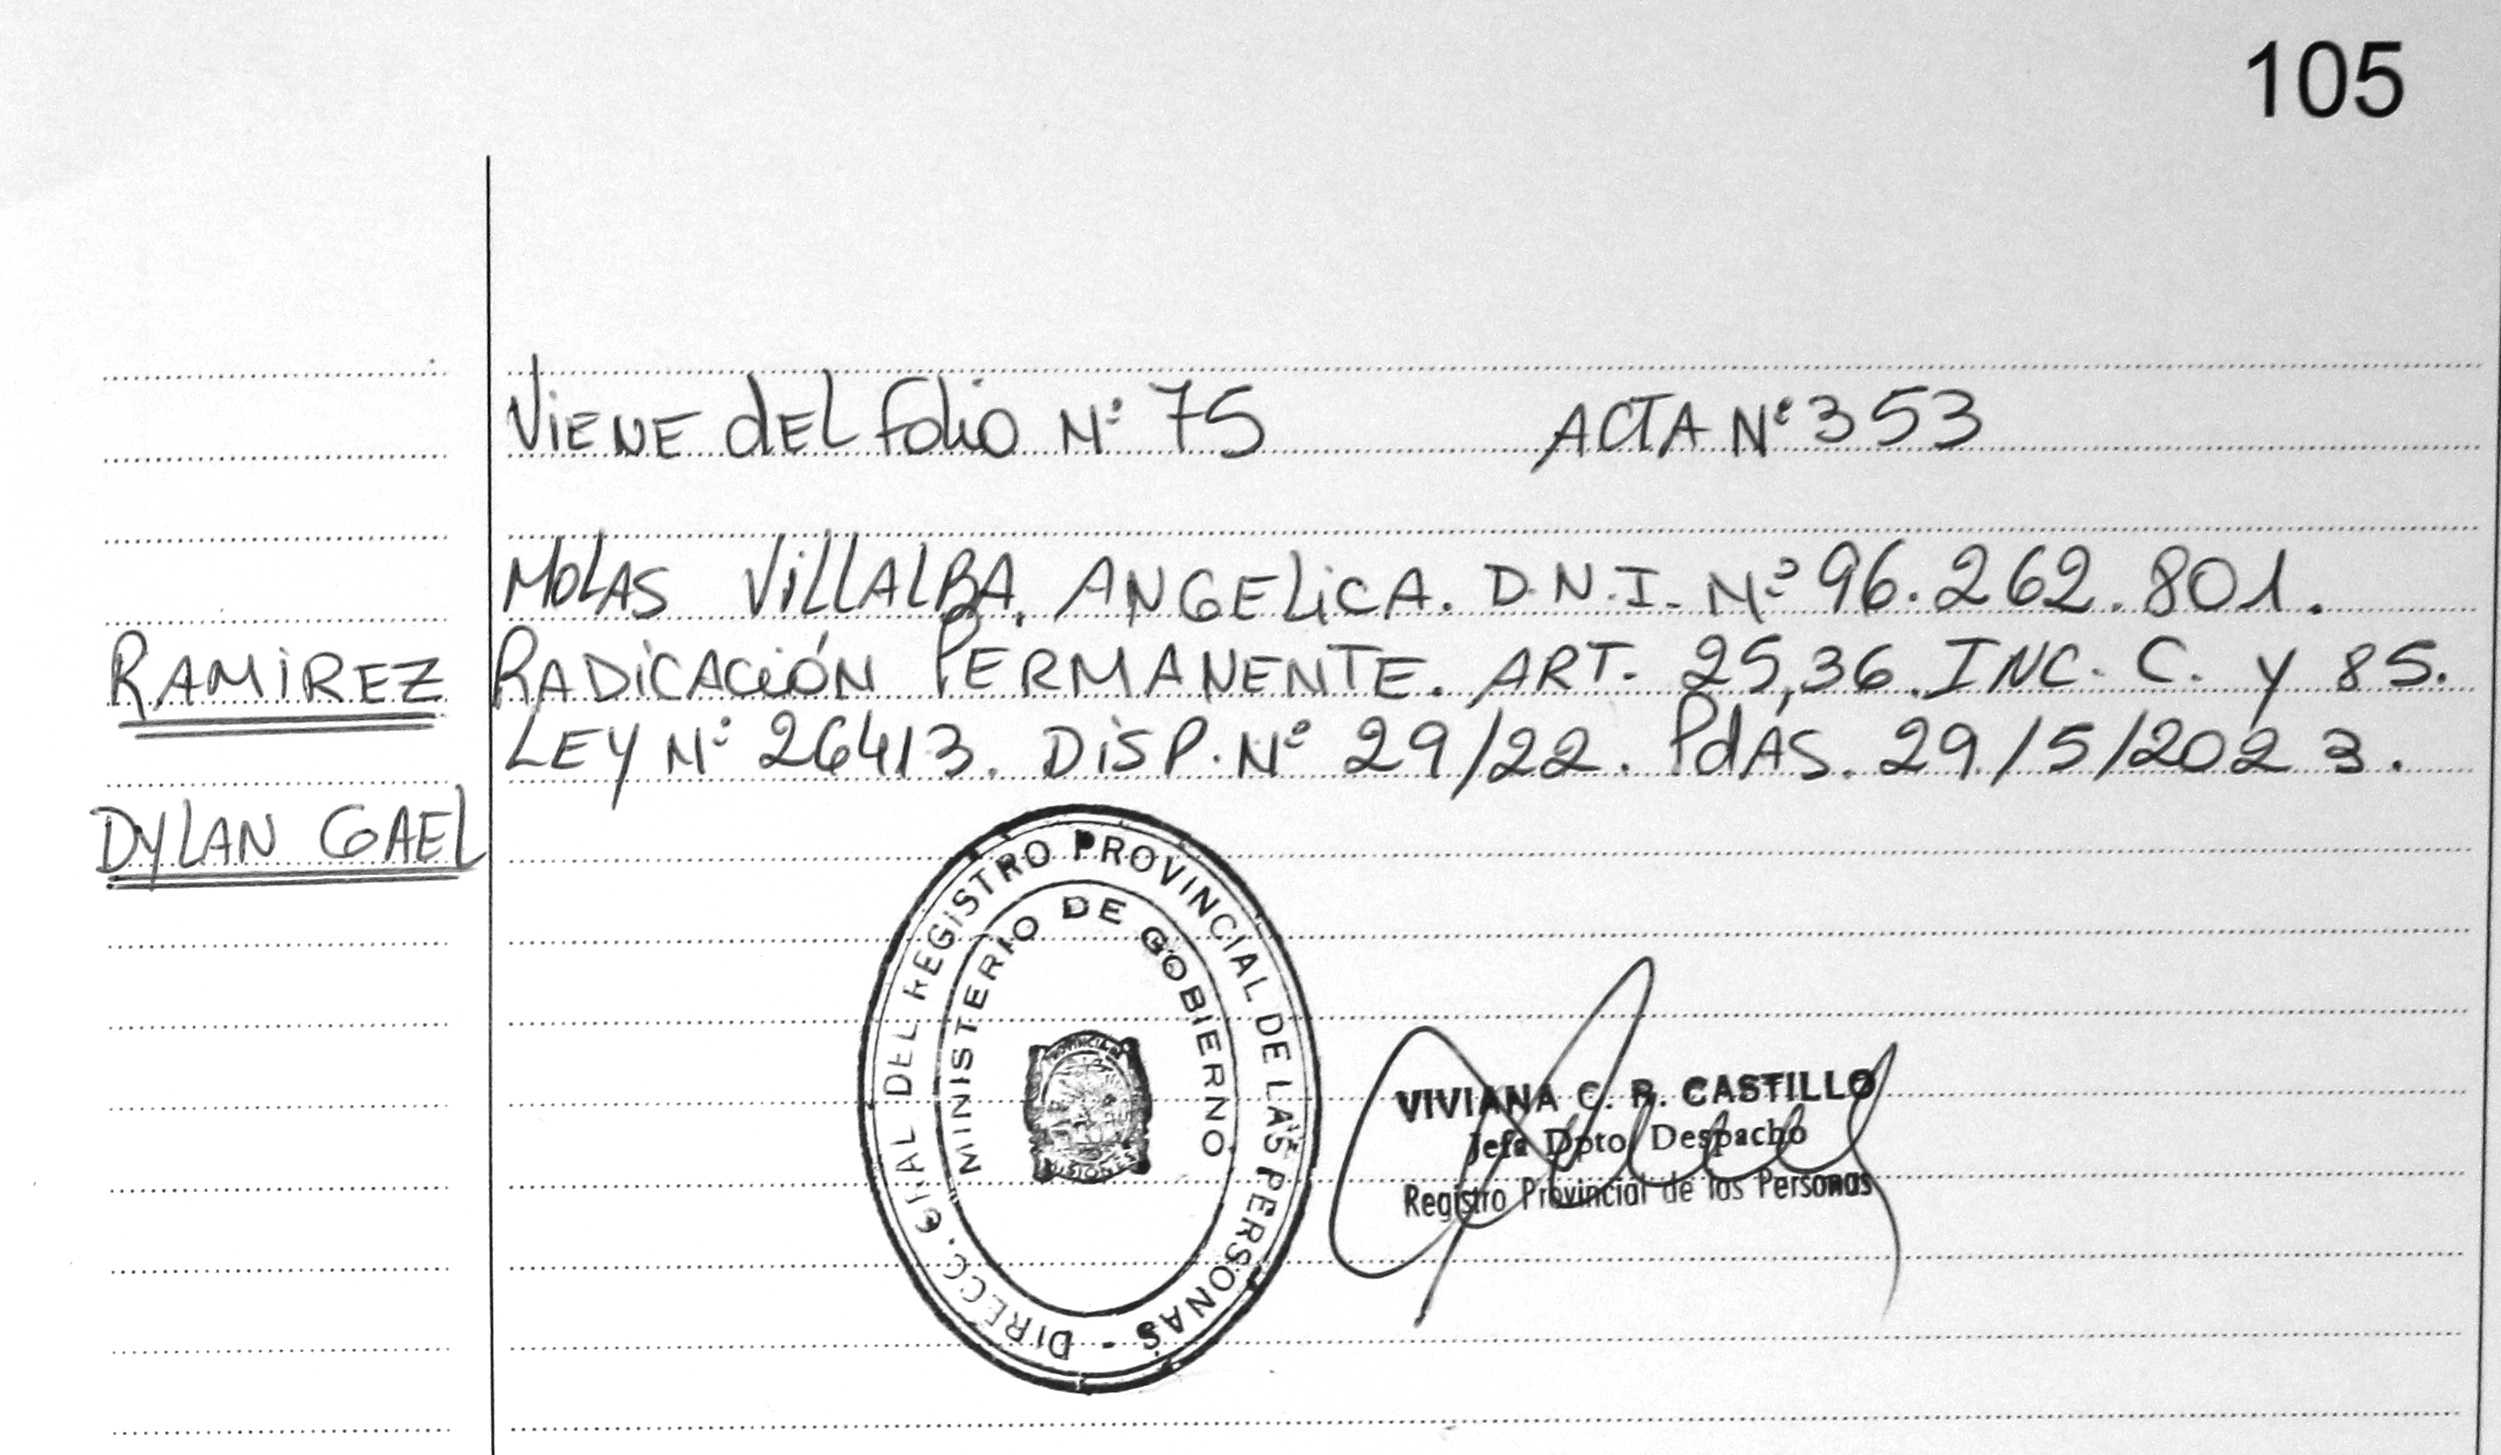 105
Viene del folio Nº 75 ACTA Nº 353
MOLAS VILLALBA, ANGELICA. D.N.I. Nº 96.262.801.
RAMIREZ
RADICACIÓN PERMANENTE. ART. 25,36. INC. C. y 85.
LEY Nº 26413. DISP. Nº 29/22. Pdas. 29/5/2023.
DYLAN GAEL
DIRECC. GRAL DEL REGISTRO PROVINCIAL DE LAS PERSONAS -
MINISTERIO DE GOBIERNO
PROVINCIA DE
MISIONES
VIVIANA C. R. CASTILLO
Jefa Dpto. Despacho
Registro Provincial de las Personas